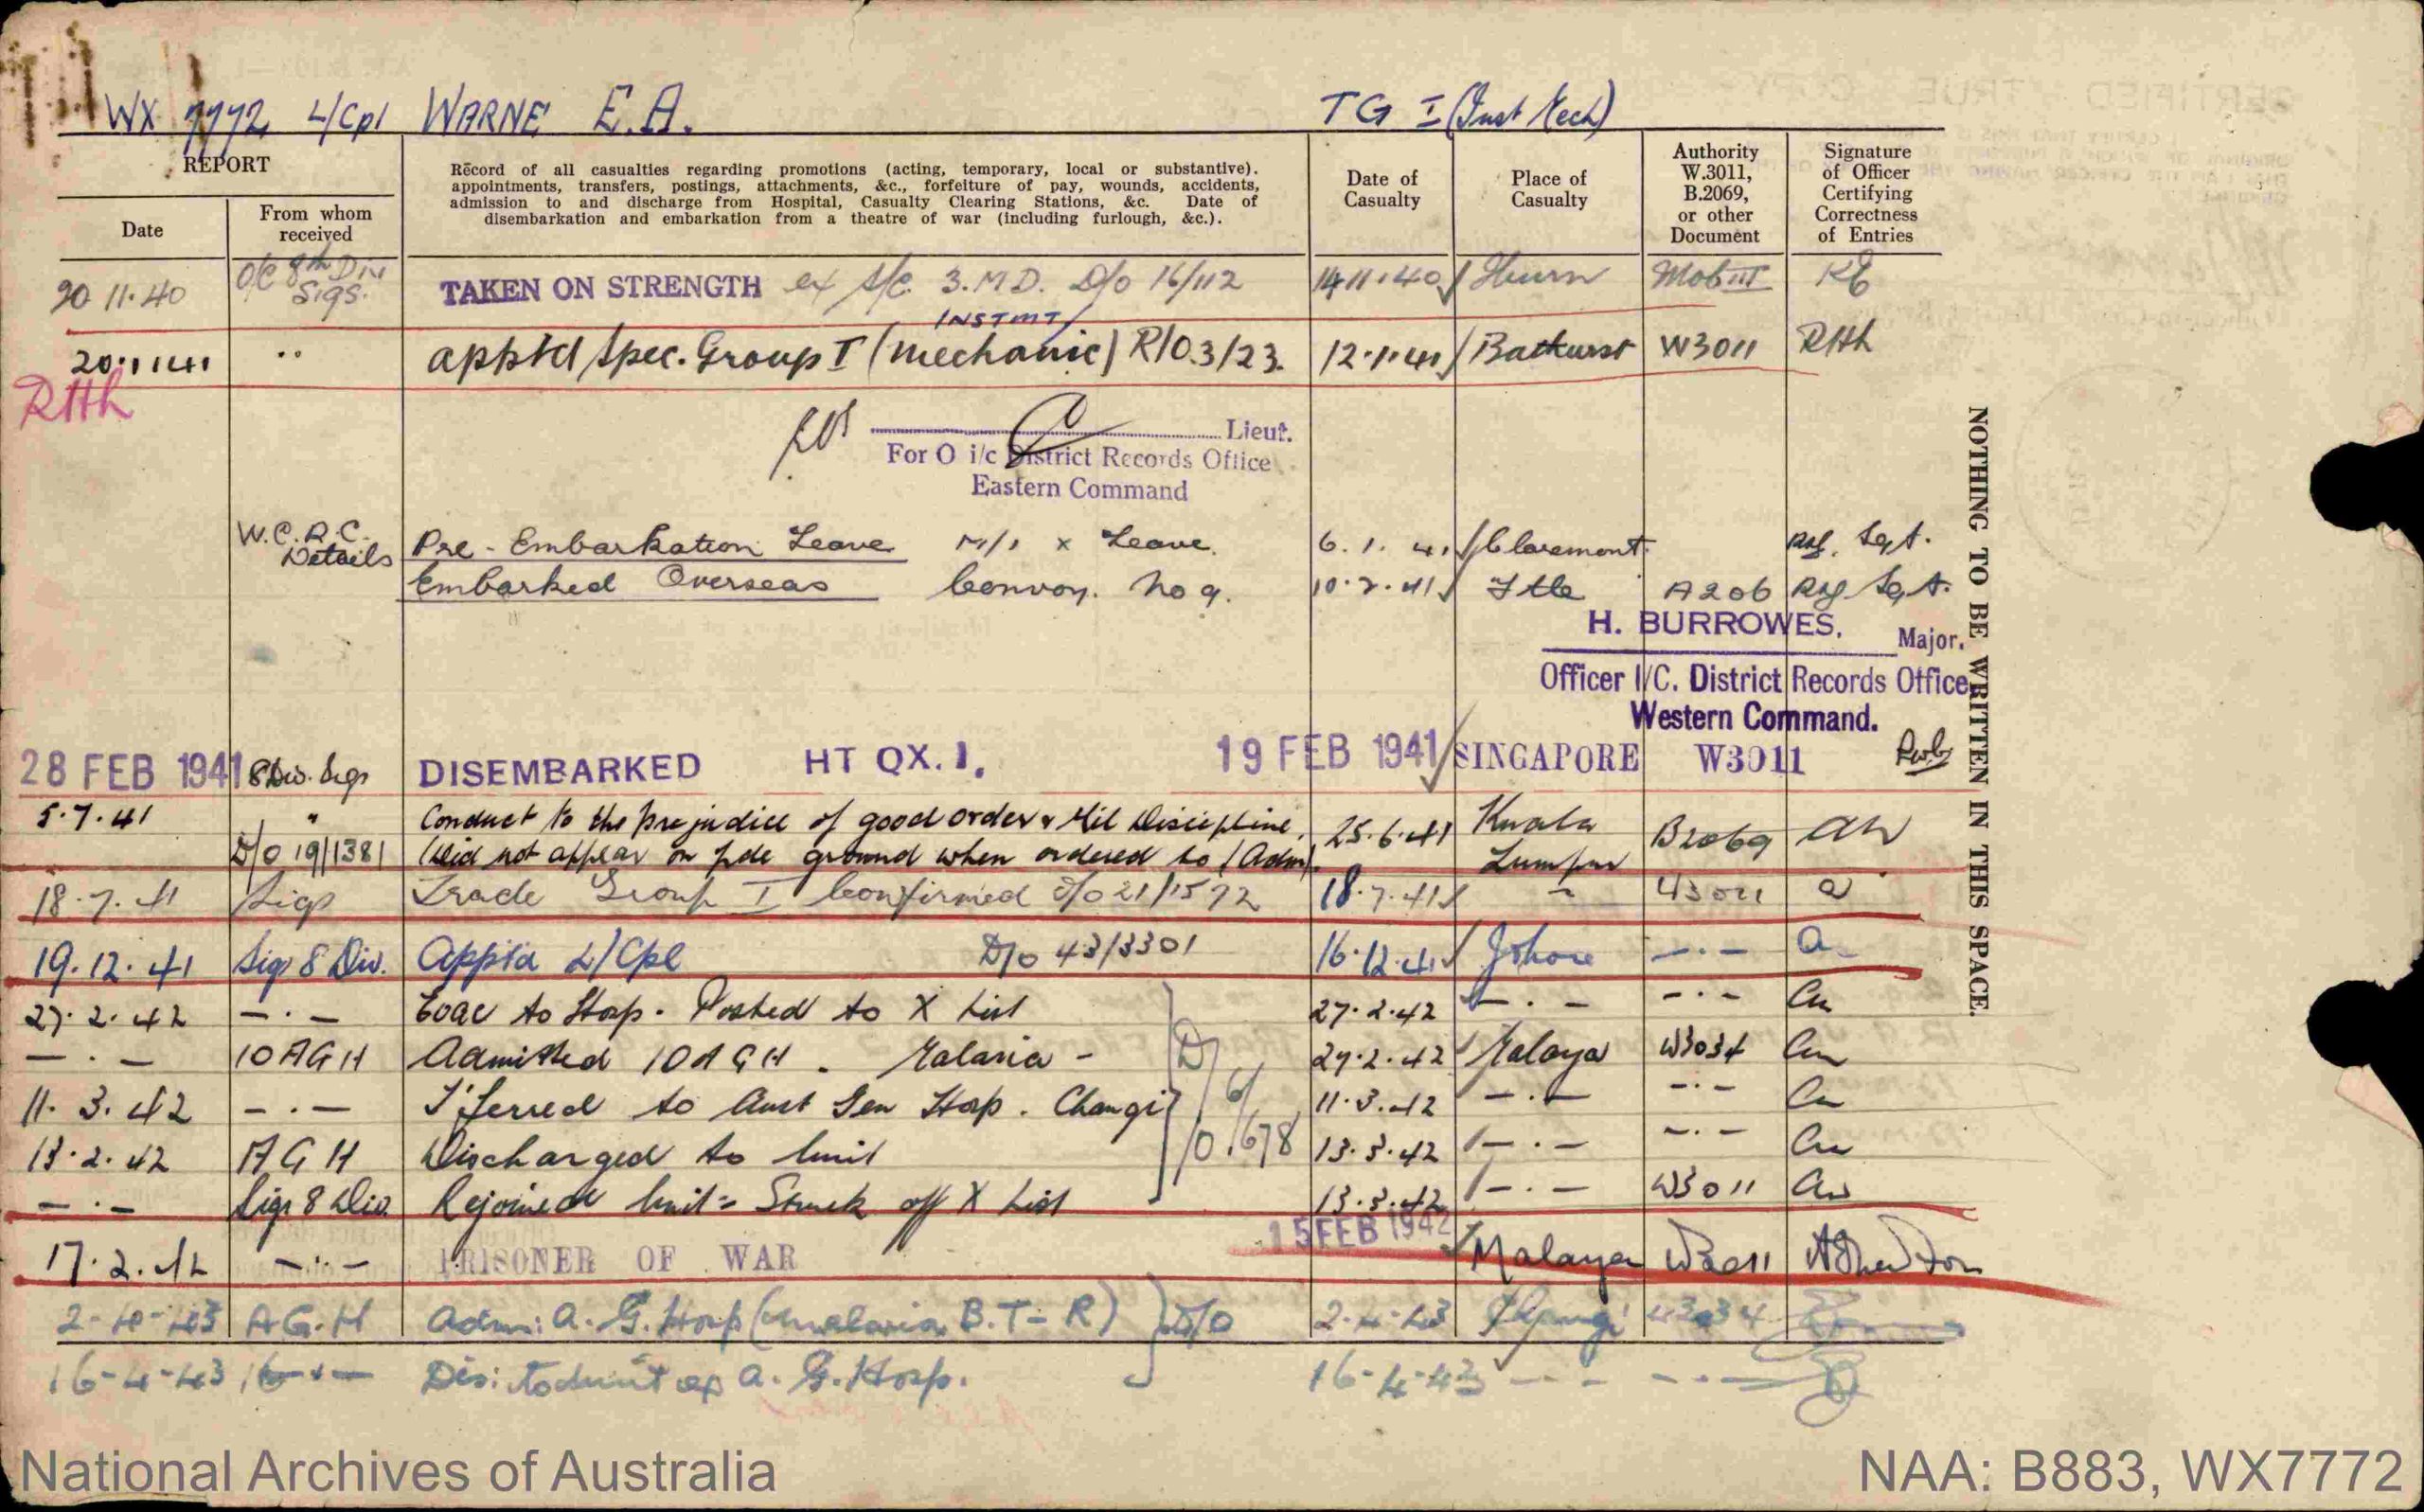 WX 7772 L/Cpl WARNE E.A. TG I (Inst Mech)
REPORT
Date
From whom received
Record of all casualties regarding promotions (acting, temporary, local or substantive).
appointments, transfers, postings, attachments, &c., forfeiture of pay, wounds, accidents,
admission to and discharge from Hospital, Casualty Clearing Stations, &c. Date of
disembarkation and embarkation from a theatre of war (including furlough, &c.).
Date of Casualty
Place of Casualty
Authority W.3011, B.2069, or other Document
Signature of Officer Certifying Correctness of Entries
20 11.40 O/C 8th Div Sigs. TAKEN ON STRENGTH ex 3.M.D. D/o 16/112 14.11.40 Mob III
INSTMT
20.1.41 " appt'd Spec. Group I (Mechanic) R/O.3/23. 12.1.41 Bathurst W3011 RHh
RHh
Lieut.
For O i/c District Records Office
Eastern Command
W.C.R.C. Details Pre-Embarkation Leave x Leave. 6.1.41 Claremont Sgt.
Embarked Overseas Convoy. No 9. 10.2.41 Ftle A206 Sgt.
H. BURROWES. Major.
Officer I/C. District Records Office,
Western Command.
28 FEB 1941 8 Div. Sigs DISEMBARKED HT QX.1. 19 FEB 1941 SINGAPORE W3011
5.7.41 " Conduct to the prejudice of good order & Mil Discipline. 25.6.41 Kuala Lumpur B2069 AW
D/O 19/1381 (Did not appear on pde ground when ordered to (Adm).
18.7.41 Sigs Trade Group I Confirmed D/o 21/1572 18.7.41 W3011
19.12.41 Sigs 8 Div. Appt'd L/Cpl D/o 43/3301 16.12.41 Johore -.-
27.2.42 -.- Evac to Hosp. Posted to X List 27.2.42 -.- -.-
-.- 10 AGH Admitted 10 AGH. Malaria - 27.2.42 Malaya W3034
11.3.42 -.- T'ferred to Aust Gen Hosp. Changi 11.3.42 -.- -.-
13.2.42 AGH Discharged to Unit 13.3.42 -.- -.-
D/O 6/678
-.- Sigs 8 Div. Rejoined Unit = Struck off X List 13.3.42 -.- W3011
17.2.42 -.- PRISONER OF WAR 15 FEB 1942 Malaya W3011
2-4-43 A.G.H Adm: A.G.Hosp (malaria B.T-R) D/O 2-4-43 Changi W3034
16-4-43 -.- Dis: to Unit ex A.G.Hosp. 16-4-43 -.- -.-
NOTHING TO BE WRITTEN IN THIS SPACE.
National Archives of Australia
NAA: B883, WX7772